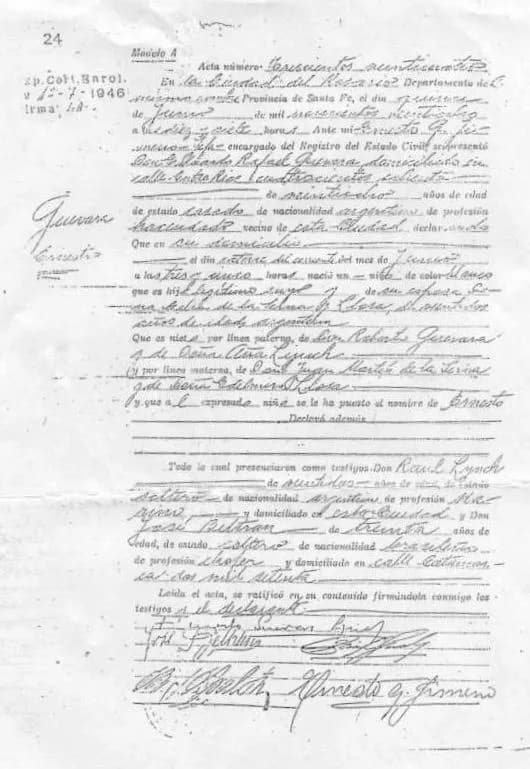 24
Modelo A
Acta número Trescientos veinticuatro
Sp. Coll. Barol.
En la Ciudad del Rosario Departamento del
12-7-1946
mismo nombre Provincia de Santa Fe, el día quince
Firma:
de Junio de mil novecientos veintiocho
a las diez y siete horas Ante mi Ernesto G. Ji-
meno Jefe encargado del Registro del Estado Civil, se presentó
Don Ernesto Rafael Guevara domiciliado en
calle Entre Rios cuatrocientos ochenta
de veintiocho años de edad
de estado casado de nacionalidad argentino de profesión
hacendado vecino de esta Ciudad declarando
Guevara
Ernesto
Que en su domicilio
el día catorce del corriente del mes de Junio
a las tres y cinco horas nació un niño de color blanco
que es hijo legítimo suyo y de su esposa Do-
ña Celia de la Serna y Llosa, de veintidos
años de edad argentina
Que es nieto por línea paterna, de Don Roberto Guevara
y de Doña Ana Lynch
y por línea materna, de Don Juan Martin de la Serna
y de Doña Edelmira Llosa
y que al expresado niño se le ha puesto el nombre de Ernesto
Declaró además
Todo lo cual presenciaron como testigos Don Raul Lynch
de veintidos años de edad, de estado
soltero de nacionalidad argentino de profesión Ma-
rino y domiciliado en esta Ciudad y Don
José Beltran de treinta años de
edad, de estado soltero de nacionalidad brasilero
de profesión chofer y domiciliado en calle Catamar-
ca dos mil setenta
Leída el acta, se ratificó en su contenido firmándola conmigo los
testigos y el declarante
Ernesto Guevara Lynch
José Beltran
Ernesto G. Jimeno